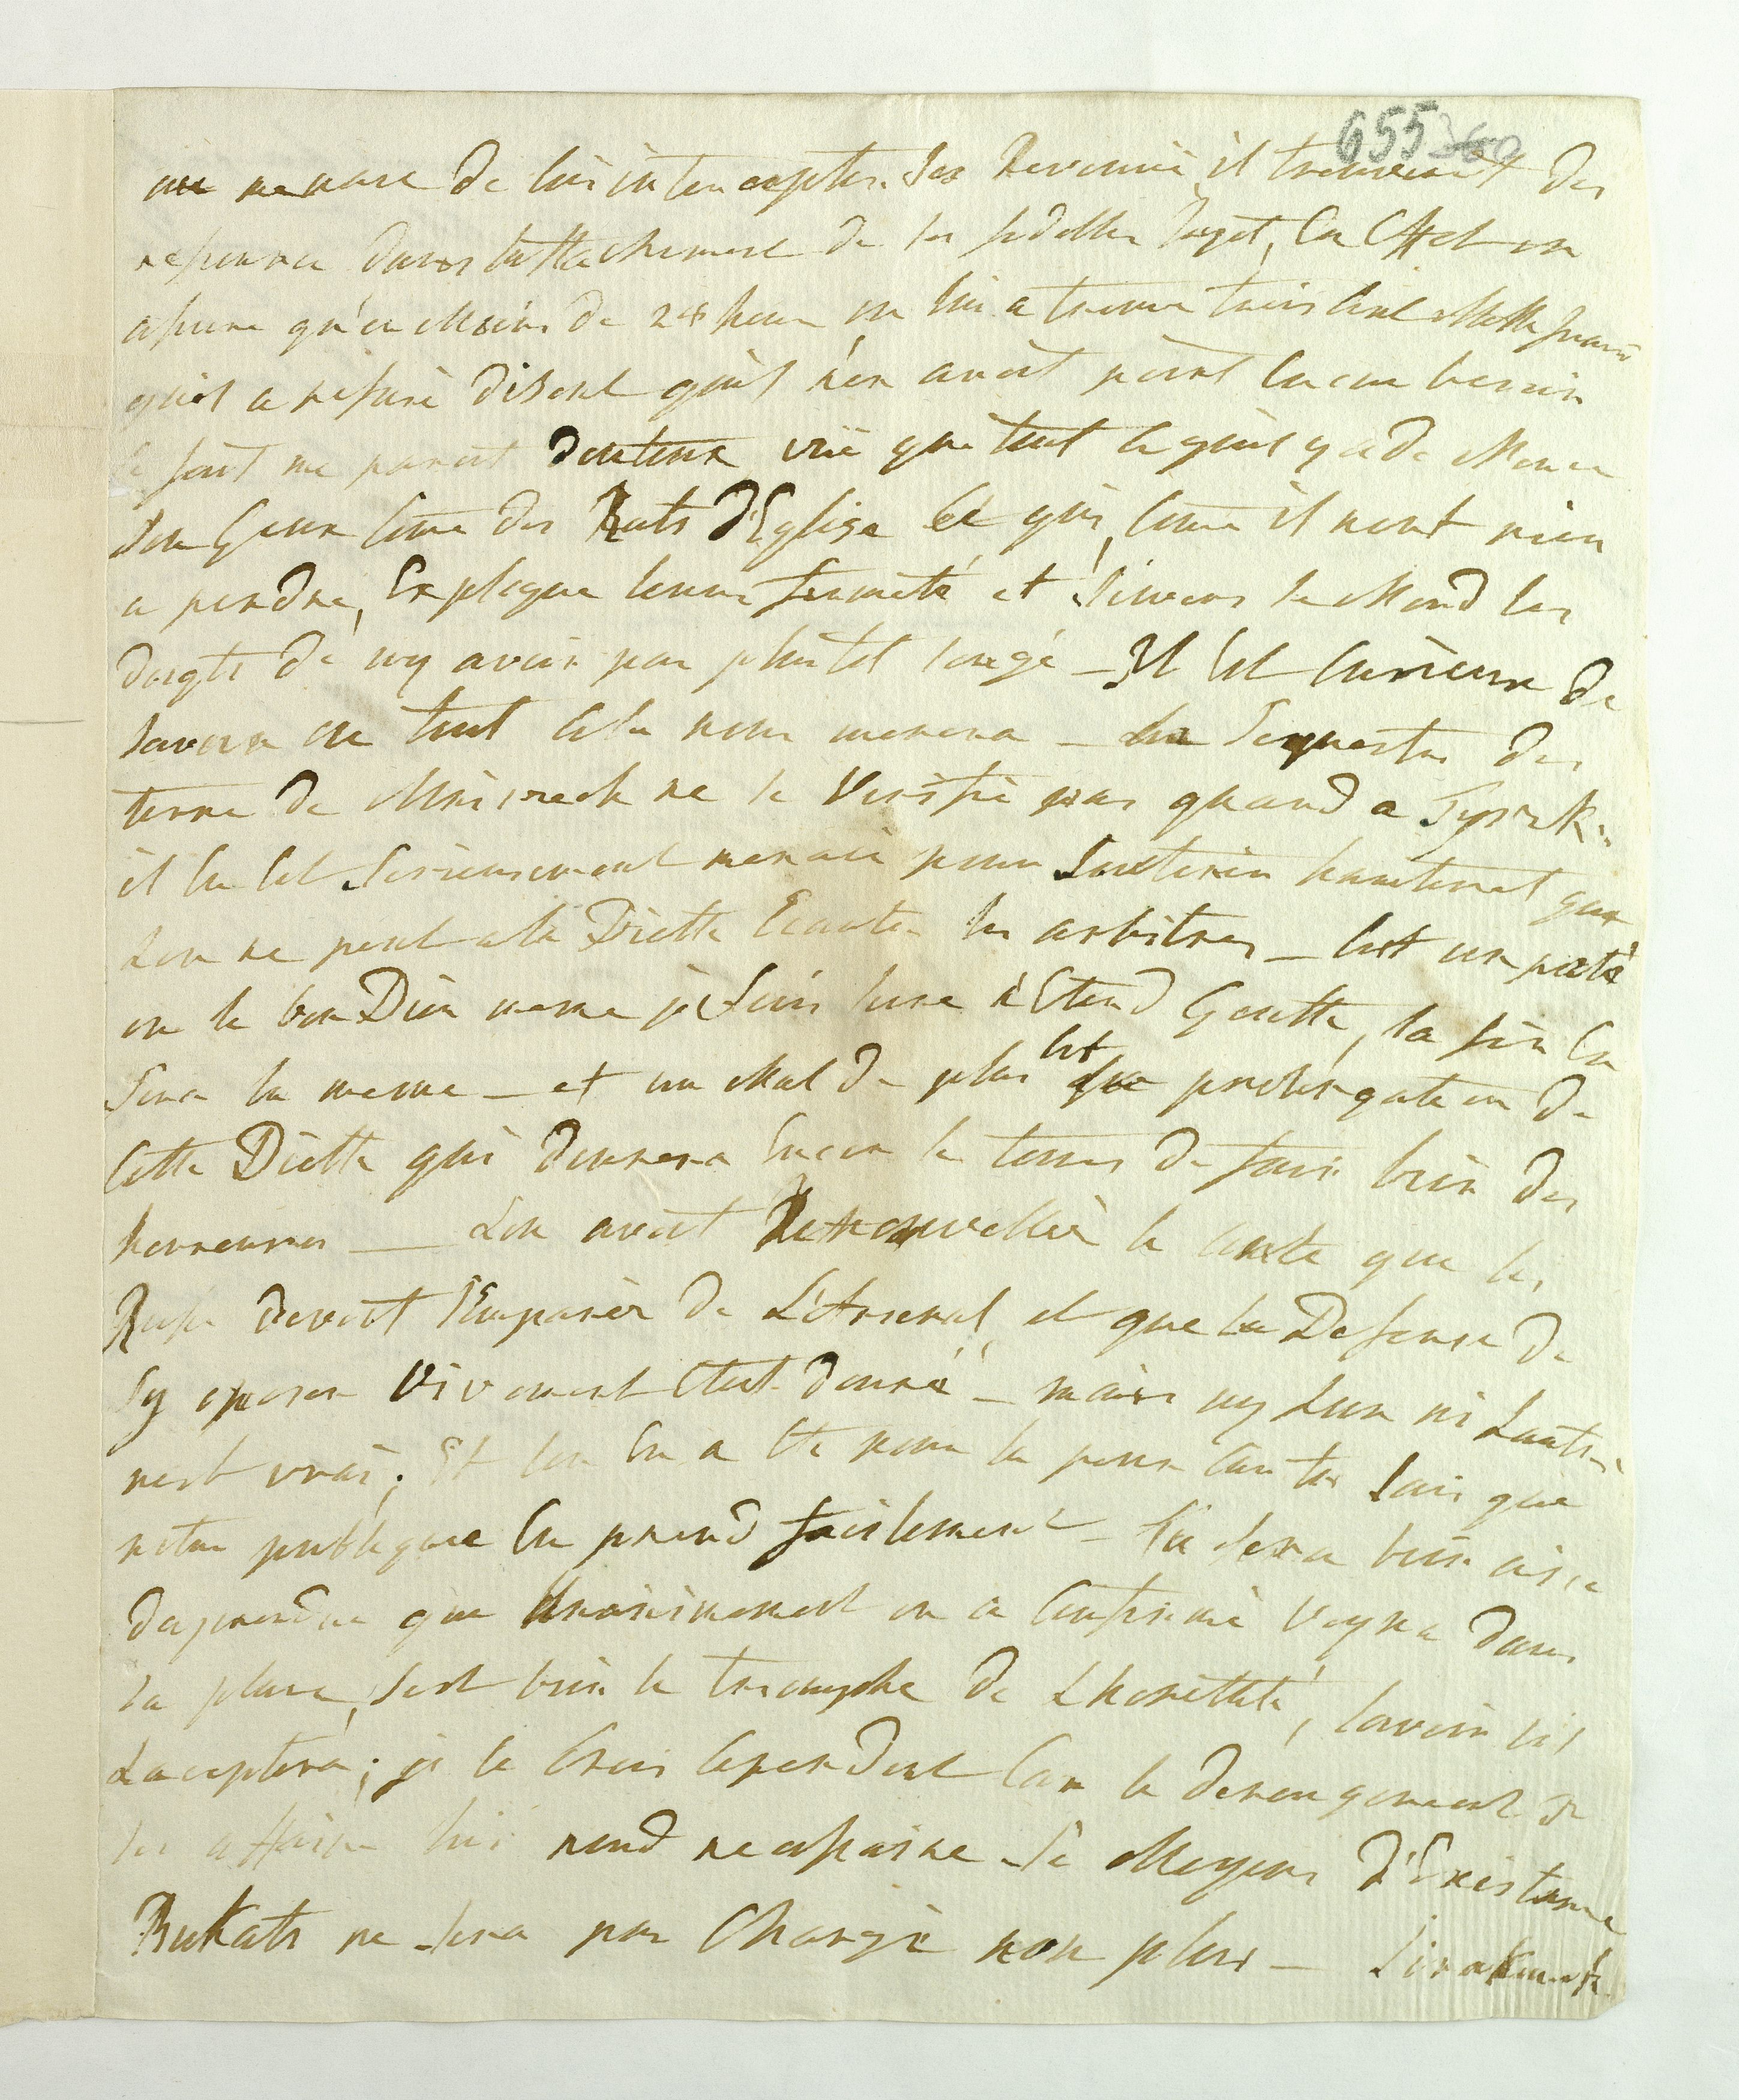 655 360
on menace de lui intercepter ses Revenue, il trouverait des
resource dans lattachement de ses fidelles sujet, En Effet on
assure qu'en Moins de 24 heure on lui a trouvé trois Cent Mille francs
quil a refusé disent quil nen avoit point encore besoin
le fait me paroit douteux vue que tout ce quil y a de Mieux
son Gueux come des Rats d'Eglise Ce qui, come il nont rien
a perdre, Explique leure fermeté et Sinvers se Mord les
doigts de ny avoir pas plutot songé – Il Est Curieux de
savoir ou tout cela nous menera – Le Sequestre des
terre de Mniszech ne se Verifie pas quand a
il en Est Serieusement menacé pour Soutenir hautement que
Lon ne peut a la Diette Ecarter les arbitres – Cest un paté
ou le bon Dieu meme je suis sure n'Etend Goutte, la fin En
sera la meme – et un Mal de plus Cest la prolongation de
Cette Diette qui donnera Encor le tems de faire bien des
horreures — Lon avoit Renouvellée le Conte que les
Russe devoit s'Emparér de L'Arsenal, et que la Defense de
sy oposer Vivement Etet donné – mais ny Lun ni Lautre
nest vrai; Et lon En a Eté pour la peur Car tu sais que
notre publique En prend facilement – Tu sera bien aise
daprendre que Unanimement on a Confirmé Voyna dans
sa place, Sest bien le triomphe de Lhonetteté, savoir sil
Laceptera; je le Crois Cependent Car le derangement de
ses affaire lui rend necessaire se Moyens D'Existence
Bukaty ne sera pas Changé non plus –